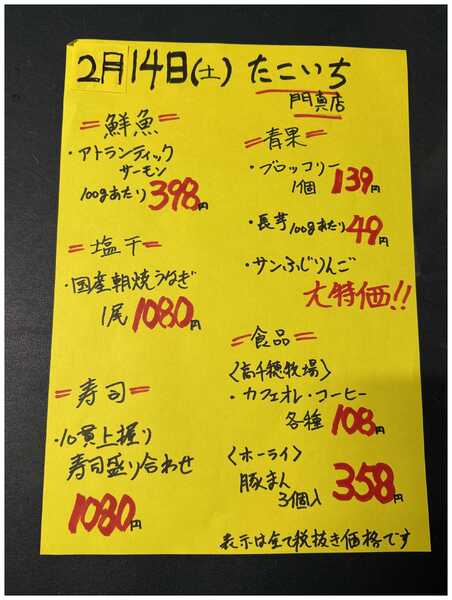 2月14日(土) たこいち
門真店
=鮮魚=
・アトランティック
サーモン
100gあたり 398円
=塩干=
・国産朝焼うなぎ
1尾 1080円
=寿司=
・10貫上握り
寿司盛り合わせ
1080円
=青果=
・ブロッコリー
1個 139円
・長芋100gあたり 49円
・サンふじりんご
大特価!!
=食品=
〈高千穂牧場〉
・カフェオレ・コーヒー
各種 108円
〈ホーライ〉
豚まん
3個入 358円
表示は全て税抜き価格です